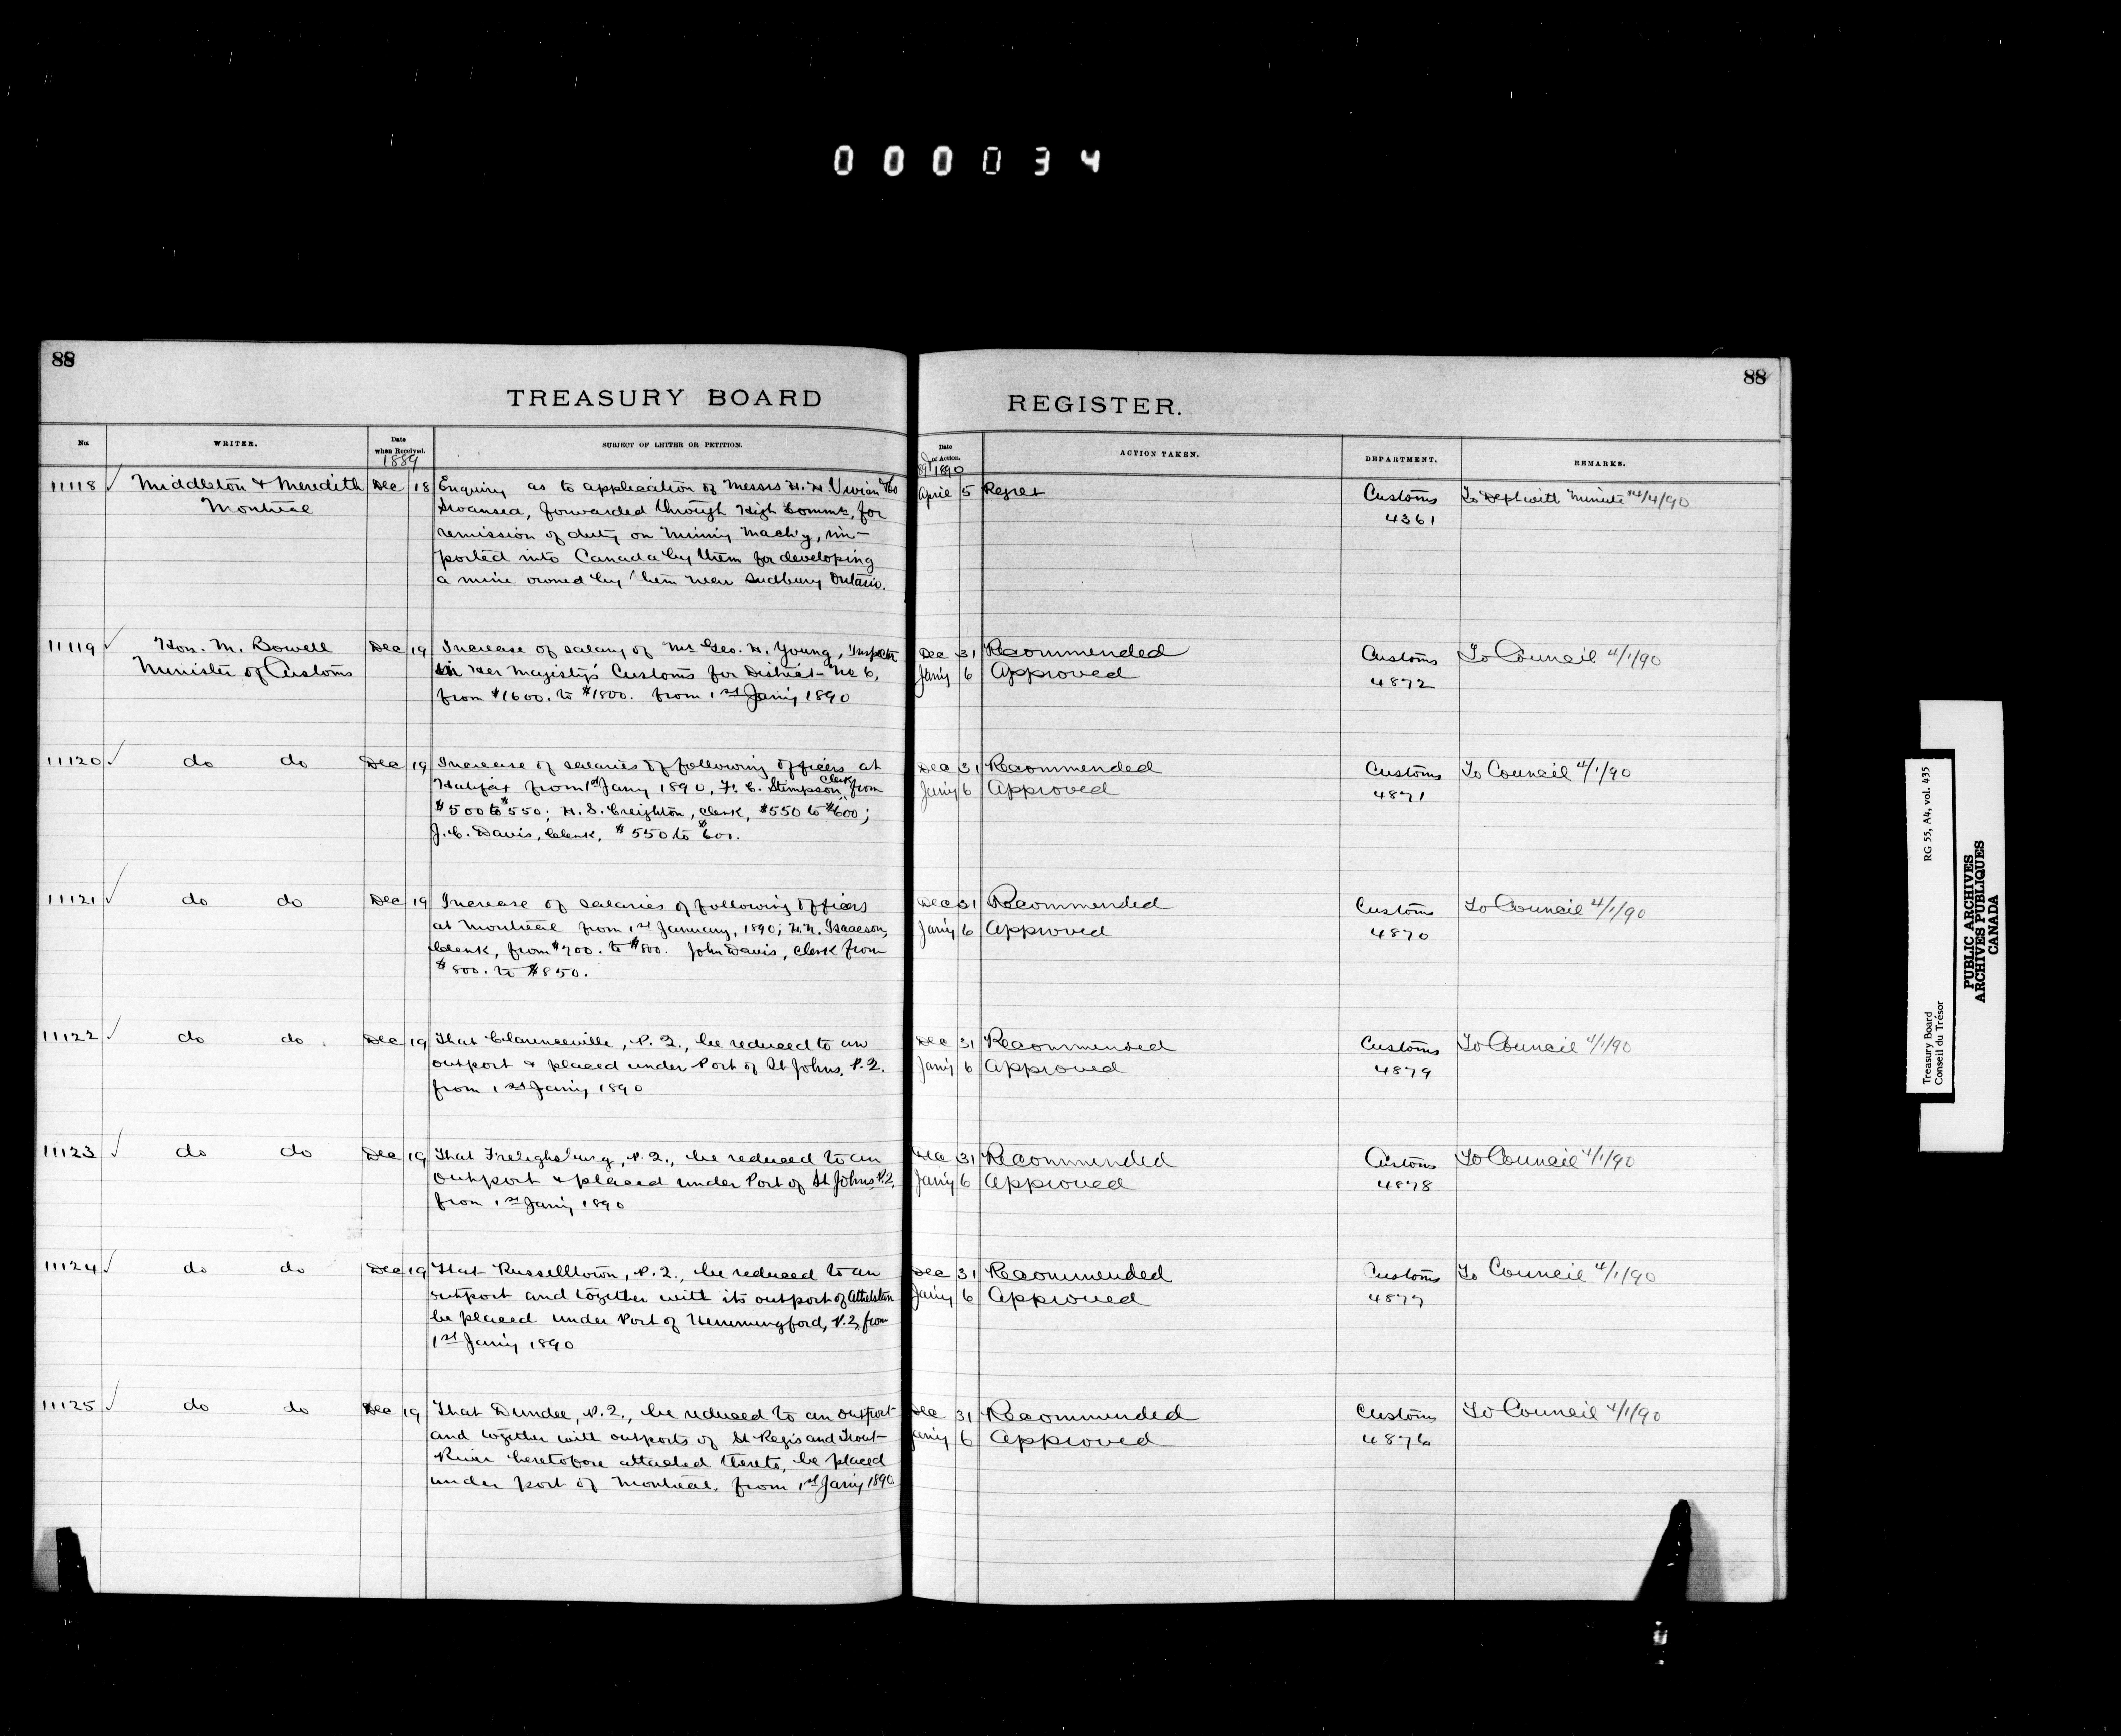 000034
88
88
TREASURY BOARD
REGISTER.
No.
WRITER.
Date when Received.
SUBJECT OF LETTER OR PETITION.
Date of Action.
ACTION TAKEN.
DEPARTMENT.
REMARKS.
1889
89 1890
11118 Middleton & Meredith Dec 18 Enquiry as to application of Messrs H. H Vivian
Montreal Swansea, forwarded through High Commr, for
remission of duty on Mining Mach'y, im-
ported into Canada by them for developing
a mine owned by them near Sudbury Ontario.
April 5 Regret Customs To Dept with Minute 14/4/90
4361
11119 Hon. M. Bowell Dec 19 Increase of salary of Mr Geo. H. Young, Inspector
Minister of Customs in Her Majesty's Customs for District No 6,
from $1600. to $1800. from 1st Jany 1890
Dec 31 Recommended Customs To Council 4/1/90
Jany 6 Approved 4872
11120 do do Dec 19 Increase of salaries of following officers at
Halifax from 1st Jany 1890, F. C. Stimpson, Clerk from
$500 to $550; H. S. Creighton, Clerk, $550 to $600;
J. C. Davis, Clerk, $550 to $600.
Dec 31 Recommended Customs To Council 4/1/90
Jany 6 Approved 4871
11121 do do Dec 19 Increase of salaries of following officers
at Montreal from 1st January, 1890; H. N. Isaacson,
Clerk, from $700. to $800. John Davis, Clerk from
$800. to $850.
Dec 31 Recommended Customs To Council 4/1/90
Jany 6 Approved 4870
11122 do do Dec 19 That Clarenceville, P. Q., be reduced to an
outport & placed under Port of St Johns, P.Q.
from 1st Jany 1890
Dec 31 Recommended Customs To Council 4/1/90
Jany 6 Approved 4879
11123 do do Dec 19 That Freleighsburg, P. Q., be reduced to an
outport & placed under Port of St Johns P.Q.
from 1st Jany 1890
Dec 31 Recommended Customs To Council 4/1/90
Jany 6 Approved 4878
11124 do do Dec 19 That Russelltown, P. Q., be reduced to an
outport and together with its outport of Athelstan
be placed under Port of Hemmingford, P.Q, from
1st Jany 1890
Dec 31 Recommended Customs To Council 4/1/90
Jany 6 Approved 4877
11125 do do Dec 19 That Dundee, P. Q., be reduced to an outport
and together with outports of St Regis and Trout
River heretofore attached thereto, be placed
under port of Montreal, from 1st Jany 1890
Dec 31 Recommended Customs To Council 4/1/90
Jany 6 Approved 4876
Treasury Board RG 55, A4, vol. 435
Conseil du Trésor
PUBLIC ARCHIVES
ARCHIVES PUBLIQUES
CANADA